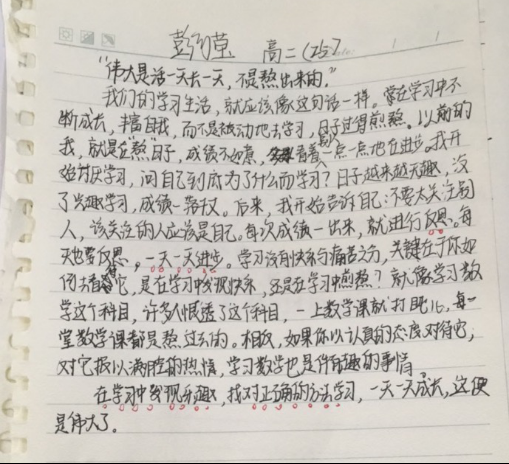 彭 莹 高二(25)
“伟大是活一天长一天，不是熬出来的。”
我们的学习生活，就应该像这句话一样。常在学习中不
断成长，丰富自我，而不是被动地去学习，日子过得煎熬。以前的
我，就是在熬日子，成绩不如意，看着别人一点一点地在进步。我开
始讨厌学习，问自己到底为了什么而学习？日子越来越无趣，没
了兴趣学习，成绩一落千丈。后来，我开始告诉自己：不要太关注别
人，该关注的人应该是自己。每次成绩一出来，就进行反思。每
天也要反思，一天一天进步。学习没有快乐与痛苦之分，关键在于你如
何去看待它，是在学习中发现快乐，还是在学习中煎熬？就像学习数
学这个科目，许多人恨透了这个科目，一上数学课就打瞌儿，每一
堂数学课都是熬过去的。相反，如果你以认真的态度对待它，
对它报以满腔的热情，学习数学也是件有趣的事情。
在学习中发现乐趣，找对正确的方法学习，一天一天成长，这便
是伟大了。